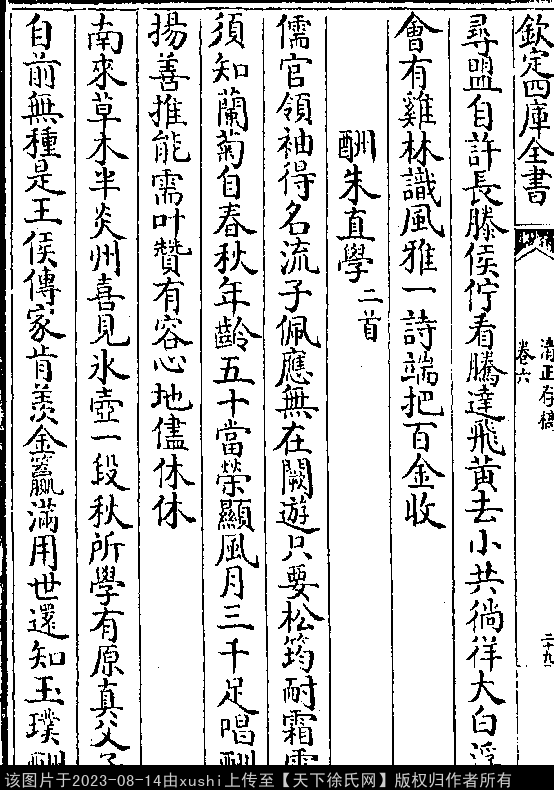 欽定四庫全書
清正存稿
卷六
二十九
尋盟自許長滕侯佇看騰達飛黃去小共徜徉大白浮
會有雞林識風雅一詩端把百金收
酬朱直學二首
儒官領袖得名流子佩應無在闕遊只要松筠耐霜
須知蘭菊自春秋年齡五十當榮顯風月三千足唱酬
揚善推能需叶贊有容心地儘休休
南來草木半炎州喜見氷壺一段秋所學有原真父子
自前無種是王侯傳家肯羨金籯滿用世還知玉璞酬
该图片于2023-08-14由xushi上传至【天下徐氏网】版权归作者所有